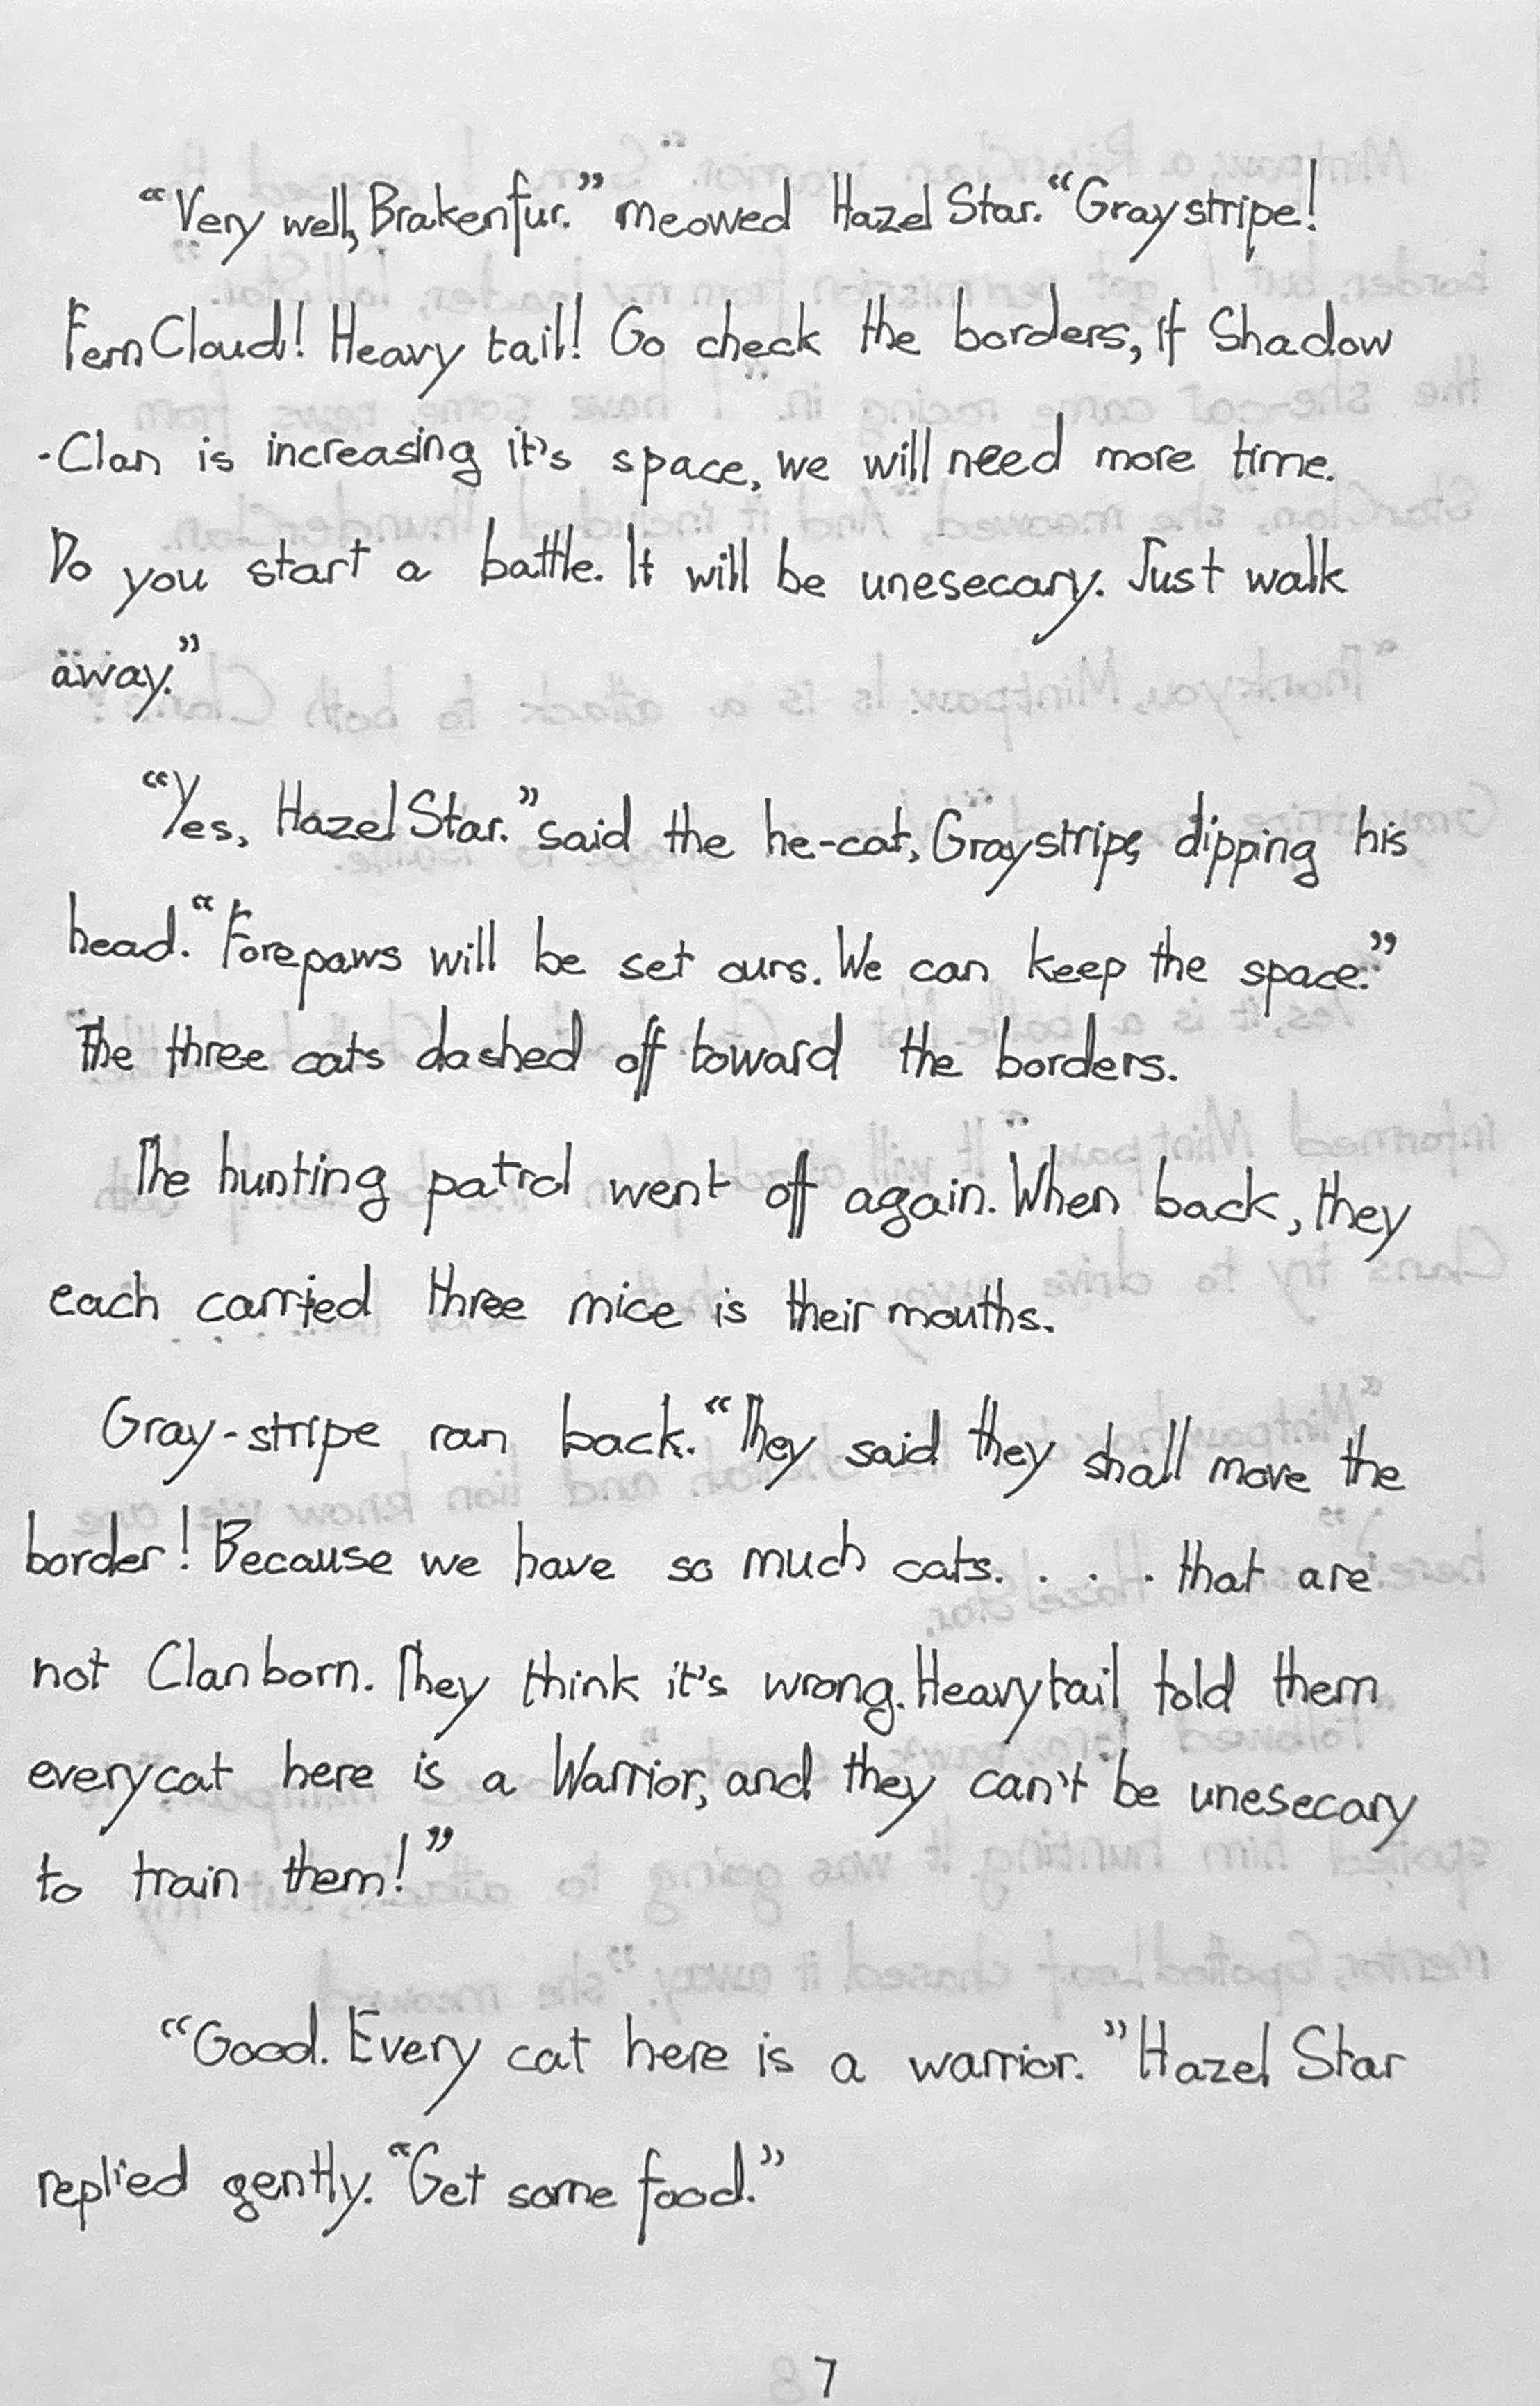 “Very well, Brakenfur.” meowed Hazel Star. “Graystripe!
Fern Cloud! Heavy tail! Go check the borders, if Shadow
-Clan is increasing it's space, we will need more time.
Do you start a battle. It will be unesecary. Just walk
away.”
“Yes, Hazel Star.” said the he-cat, Graystripe, dipping his
head. “Forepaws will be set ours. We can keep the space.”
The three cats dashed off toward the borders.
The hunting patrol went off again. When back, they
each carried three mice is their mouths.
Gray-stripe ran back. “They said they shall move the
border! Because we have so much cats. . . . that are
not Clanborn. They think it's wrong. Heavytail told them
everycat here is a Warrior, and they can't be unesecary
to train them!”
“Good. Every cat here is a warrior.” Hazel Star
replied gently. “Get some food.”
7